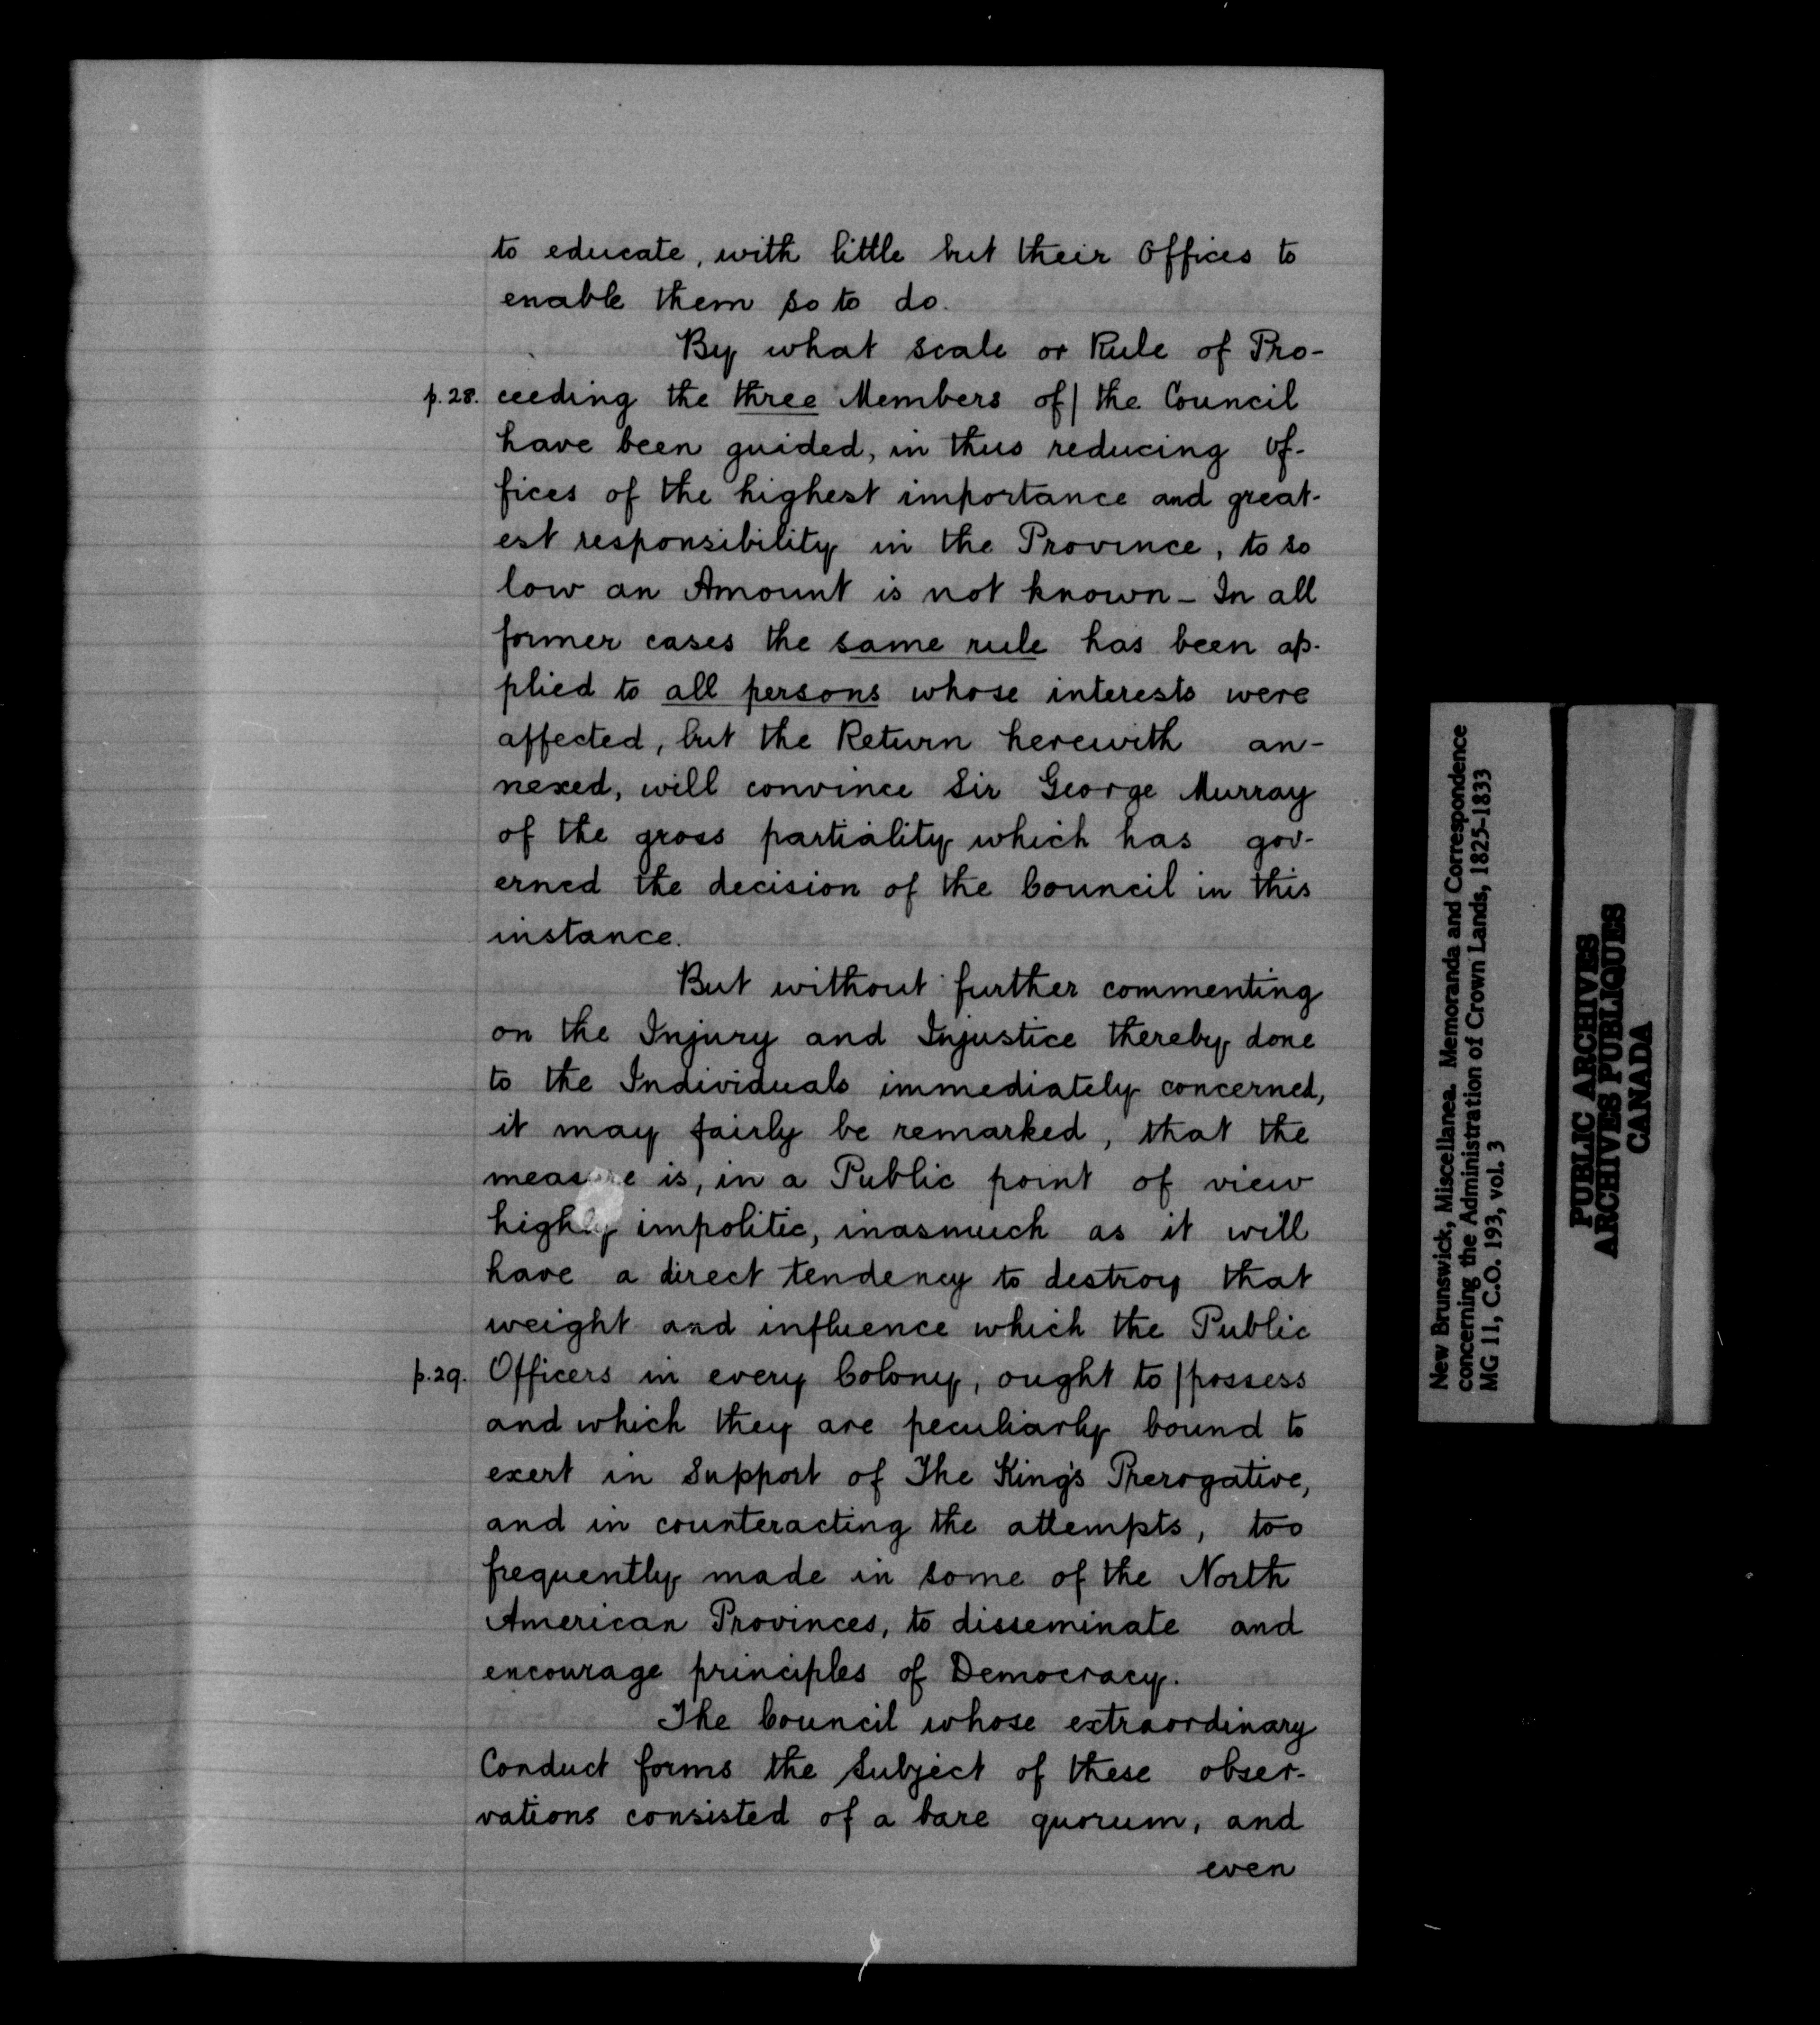 to educate, with little but their Offices to
enable them so to do.
By what scale or Rule of Pro-
p.28. ceeding the three Members of| the Council
have been guided, in thus reducing Of-
fices of the highest importance and great-
est responsibility in the Province, to so
low an Amount is not known - In all
former cases the same rule has been ap-
plied to all persons whose interests were
affected, but the Return herewith an-
nexed, will convince Sir George Murray
of the gross partiality which has gov-
erned the decision of the Council in this
instance.
But without further commenting
on the Injury and Injustice thereby done
to the Individuals immediately concerned,
it may fairly be remarked, that the
measure is, in a Public point of view
highly impolitic, inasmuch as it will
have a direct tendency to destroy that
weight and influence which the Public
p.29. Officers in every Colony, ought to |possess
and which they are peculiarly bound to
exert in Support of The King's Prerogative,
and in counteracting the attempts, too
frequently made in some of the North
American Provinces, to disseminate and
encourage principles of Democracy.
The Council whose extraordinary
Conduct forms the Subject of these obser-
vations consisted of a bare quorum, and
even
New Brunswick, Miscellanea. Memoranda and Correspondence
concerning the Administration of Crown Lands, 1825-1833
MG 11, C.O. 193, vol. 3
PUBLIC ARCHIVES
ARCHIVES PUBLIQUES
CANADA